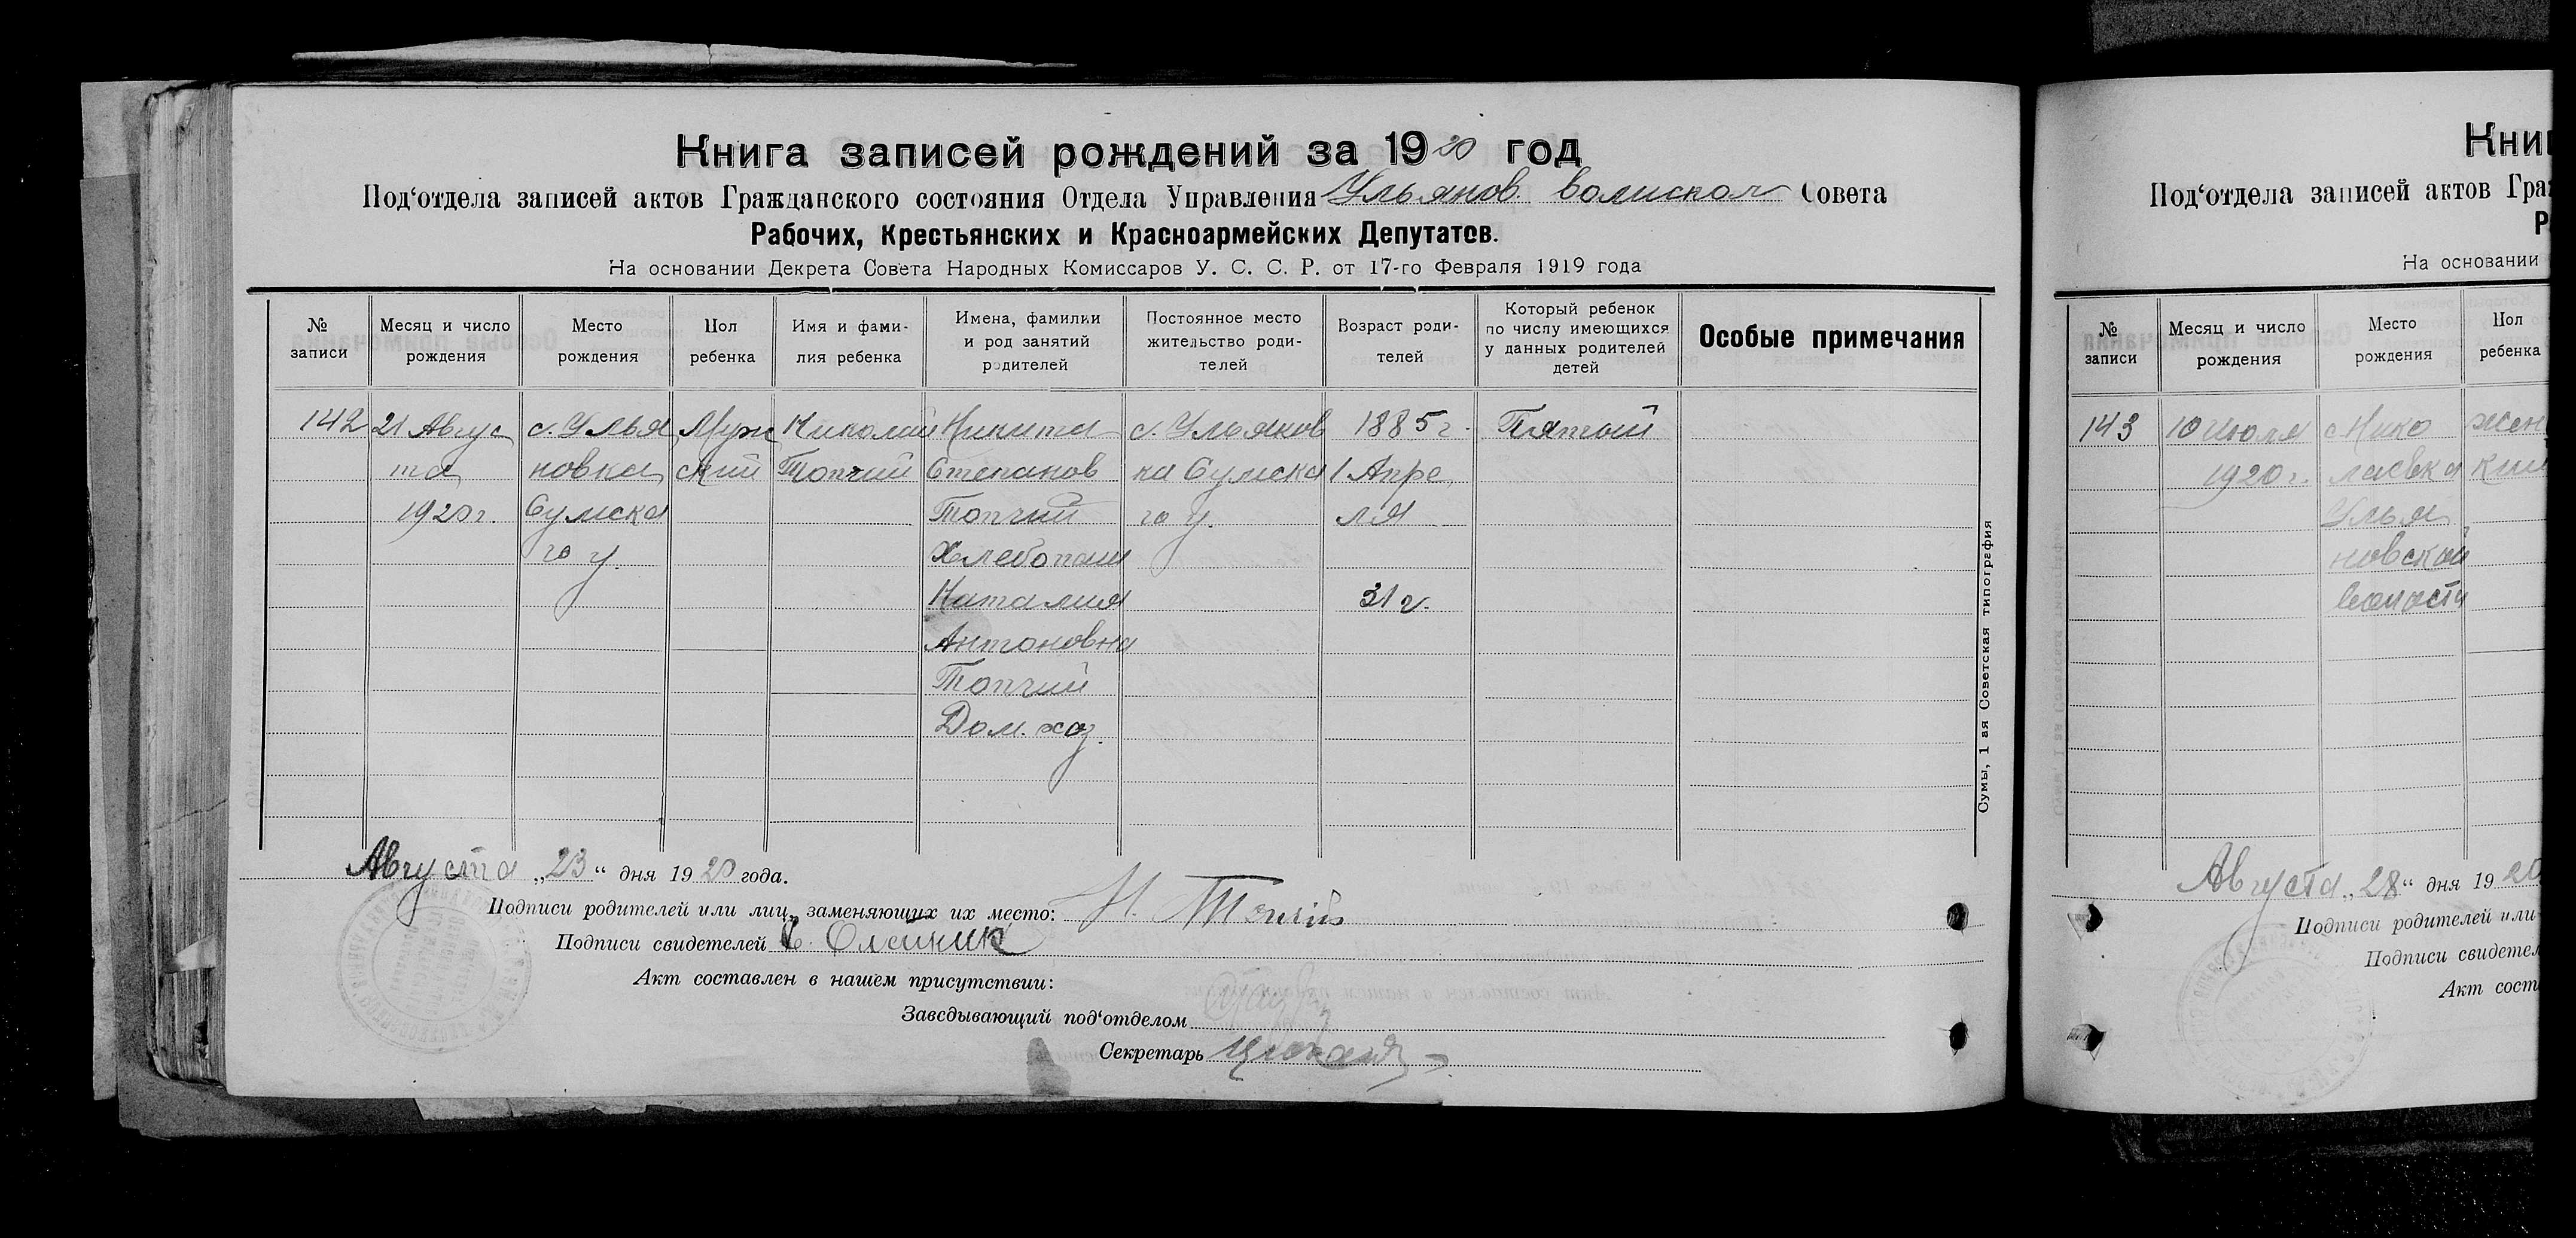 Книга записей рождений за 1920 год
Под‘отдела записей актов Гражданского состояния Отдела Управления Ульянов. волиском Совета
Рабочих, Крестьянских и Красноармейских Депутатов.
На основании Декрета Совета Народных Комиссаров У. С. С. Р. от 17-го Февраля 1919 года
№ записи
Месяц и число рождения
Место рождения
Пол ребенка
Имя и фами-
лия ребенка
Имена, фамилки
и род занятий
родителей
Постоянное место
жительство роди-
телей
Возраст роди-
телей
Который ребенок
по числу имеющихся
у данных родителей
детей
Особые примечания
142 21 Авгус с. Улья Муж Николай Никита с. Ульянов 1885 г. Пятый
та новка ский Топчий Степанов ка Сумска 1 Апре
1920 г. Сумска Топчий го у. ля
го у. Хлебопаш
Наталия 31 г.
Антоновна
Топчий
Дом. хоз.
Сумы, 1 ая Советская типография
Августа „23“ дня 1920 года.
Подписи родителей или лиц, заменяющих их место: Н. Топчій
Подписи свидетелей С. Олейник
Акт составлен в нашем присутствии:
Заведывающий под‘отделом
Секретарь
Кни
Под‘отдела записей актов Гра
Р
На основании
№ записи
Месяц и число рождения
Место рождения
Пол ребенка
143 10 Июля с. Нико жен
1920 г. лаевка кий
Улья
новской
волости
Августа „28“ дня 1920
Подписи родителей или
Подписи свидетел
Акт сост